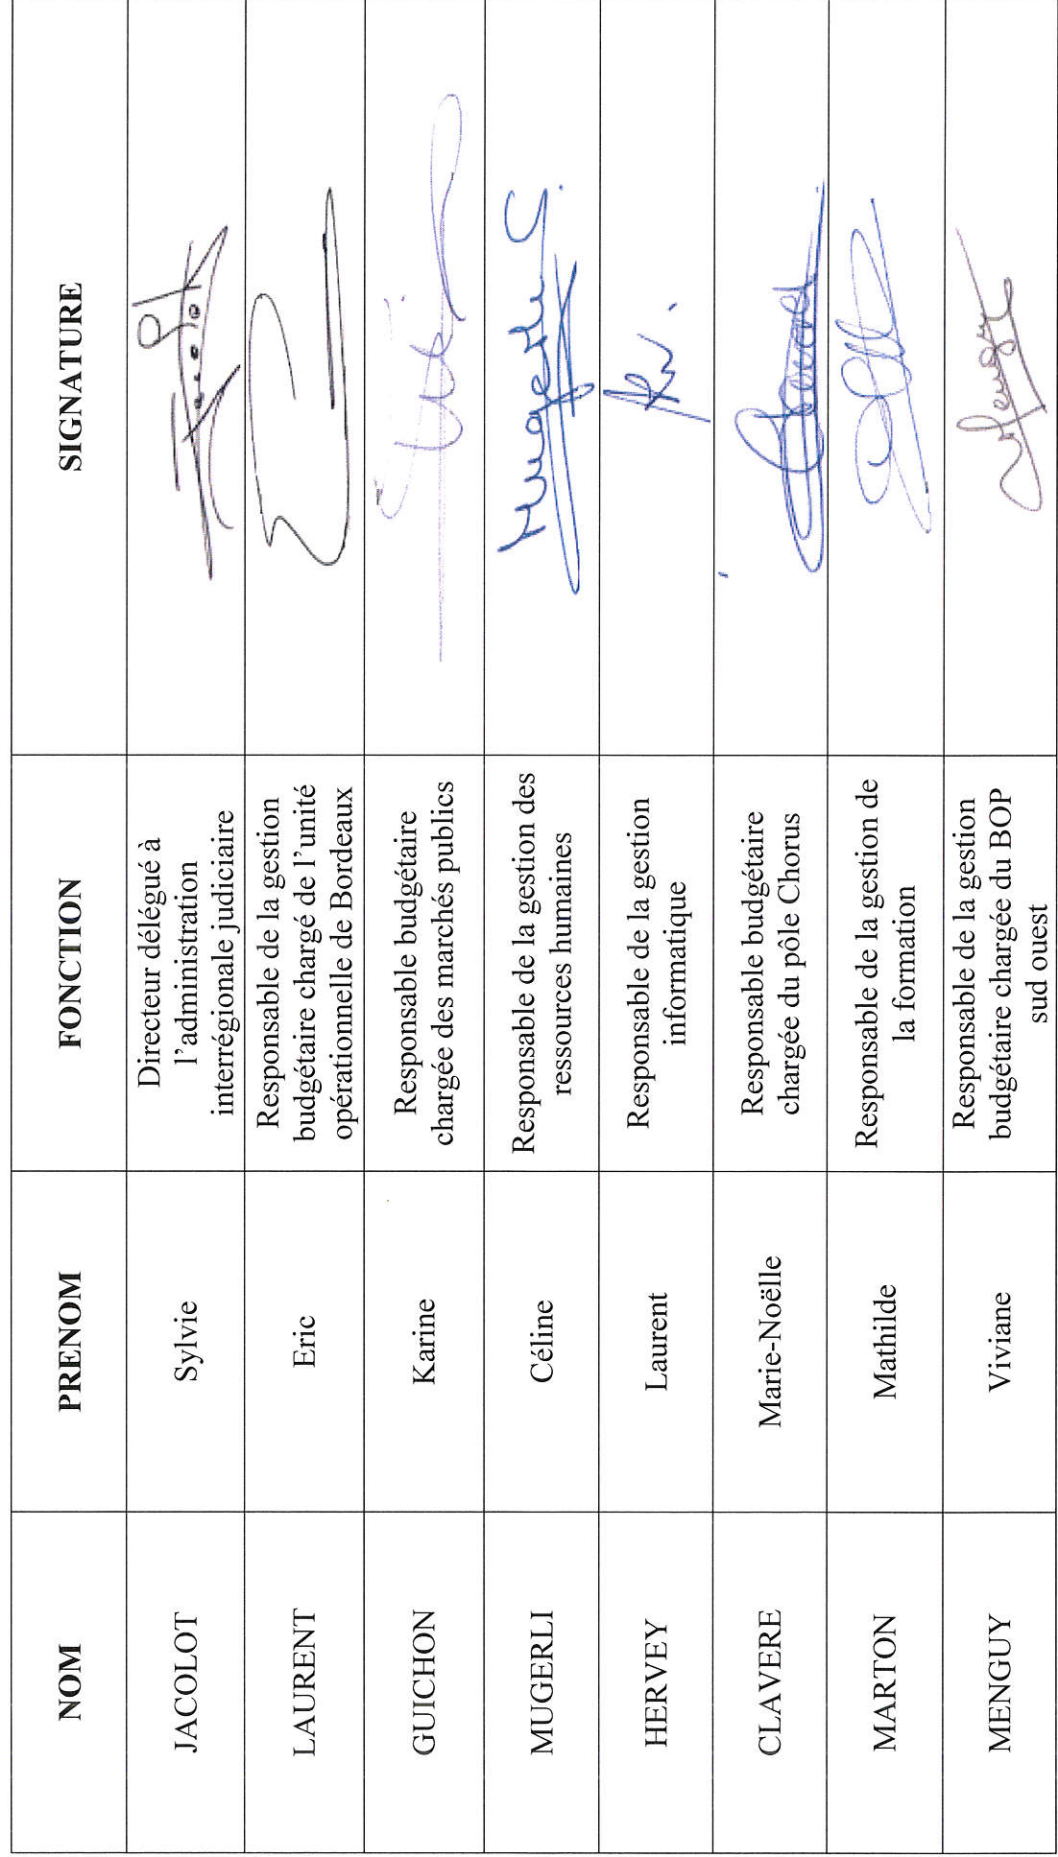 NOM PRENOM FONCTION SIGNATURE
JACOLOT Sylvie Directeur délégué à
l'administration
interrégionale judiciaire
LAURENT Eric Responsable de la gestion
budgétaire chargé de l'unité
opérationnelle de Bordeaux
GUICHON Karine Responsable budgétaire
chargée des marchés publics
MUGERLI Céline Responsable de la gestion des
ressources humaines
Mugerli C.
HERVEY Laurent Responsable de la gestion
informatique
CLAVERE Marie-Noëlle Responsable budgétaire
chargée du pôle Chorus
MARTON Mathilde Responsable de la gestion de
la formation
MENGUY Viviane Responsable de la gestion
budgétaire chargée du BOP
sud ouest